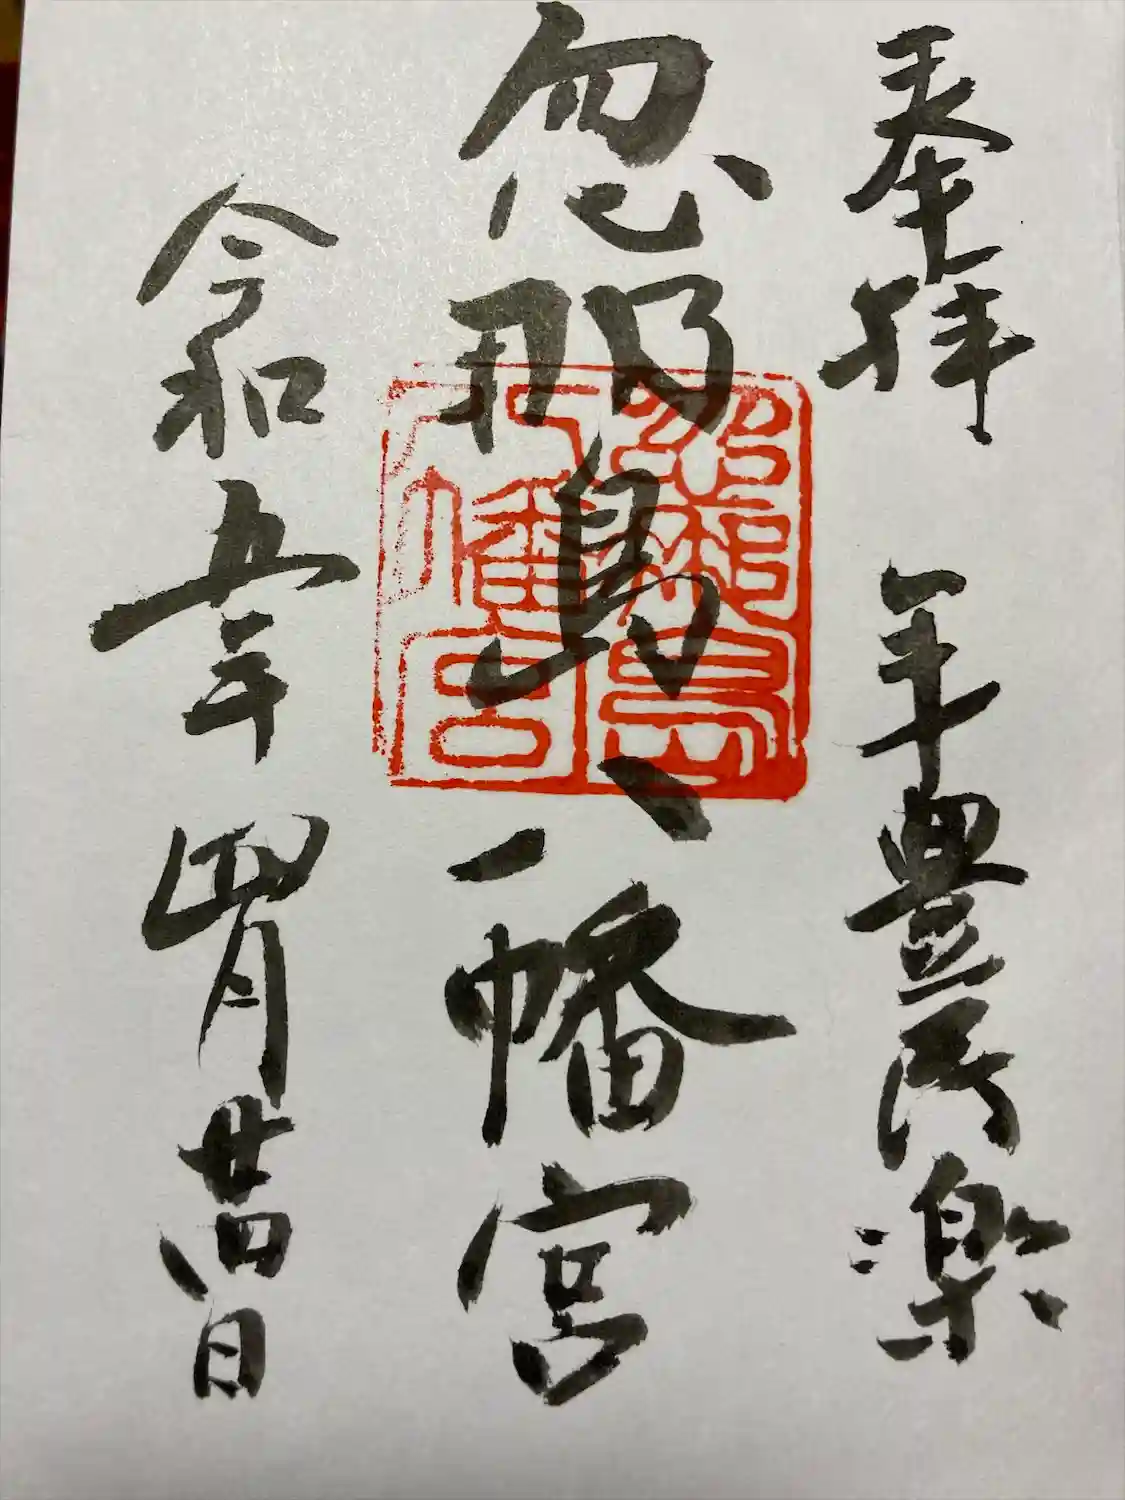 奉拝 年豊民楽
忽那島八幡宮
令和五年 四月廿四日
忽那島
八幡宮